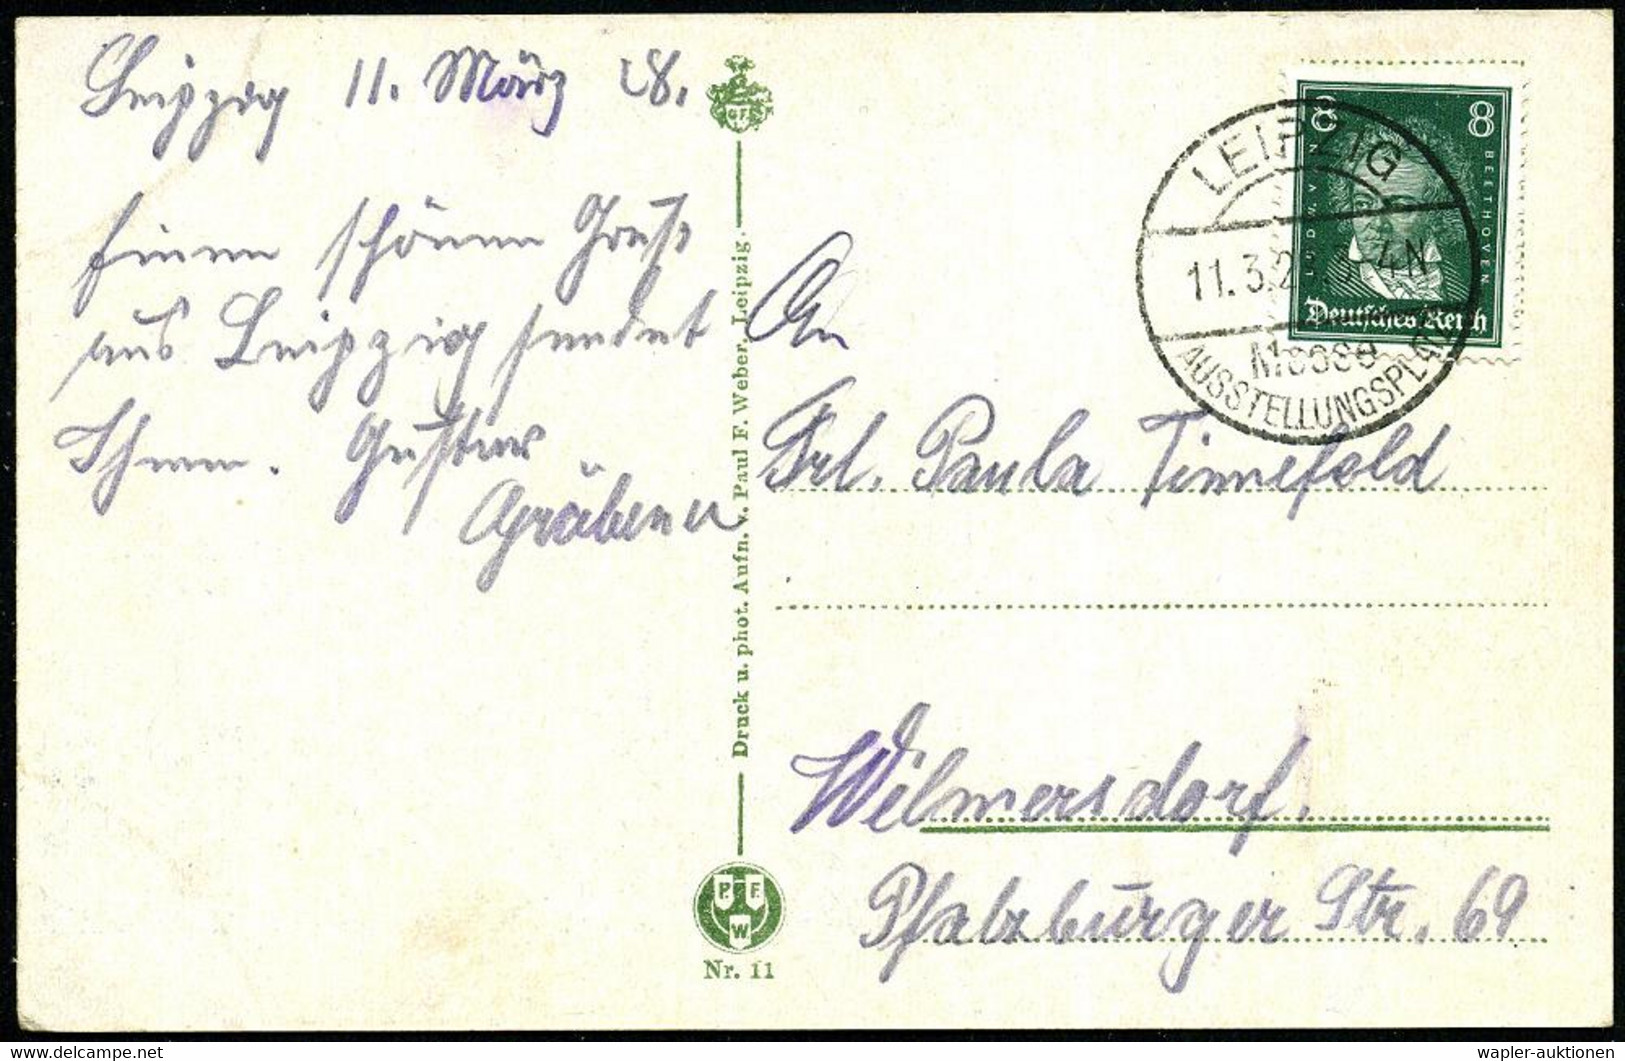 Leipzig 11. März 28.
Einen schönen Gruß
aus Leipzig sendet
Ihnen. Gustav
Gräbener
Druck u. phot. Aufn. v. Paul F. Weber, Leipzig.
G F
P F
W
Nr. 11
LEIPZIG
11.3.2 -4N
Messe
AUSSTELLUNGSPLATZ
8 8
LUDW. VAN
BEETHOVEN
Deutsches Reich
An
Frl. Paula Tinnefeld
Wilmersdorf.
Pfalzburger Str. 69
wapler-auktionen